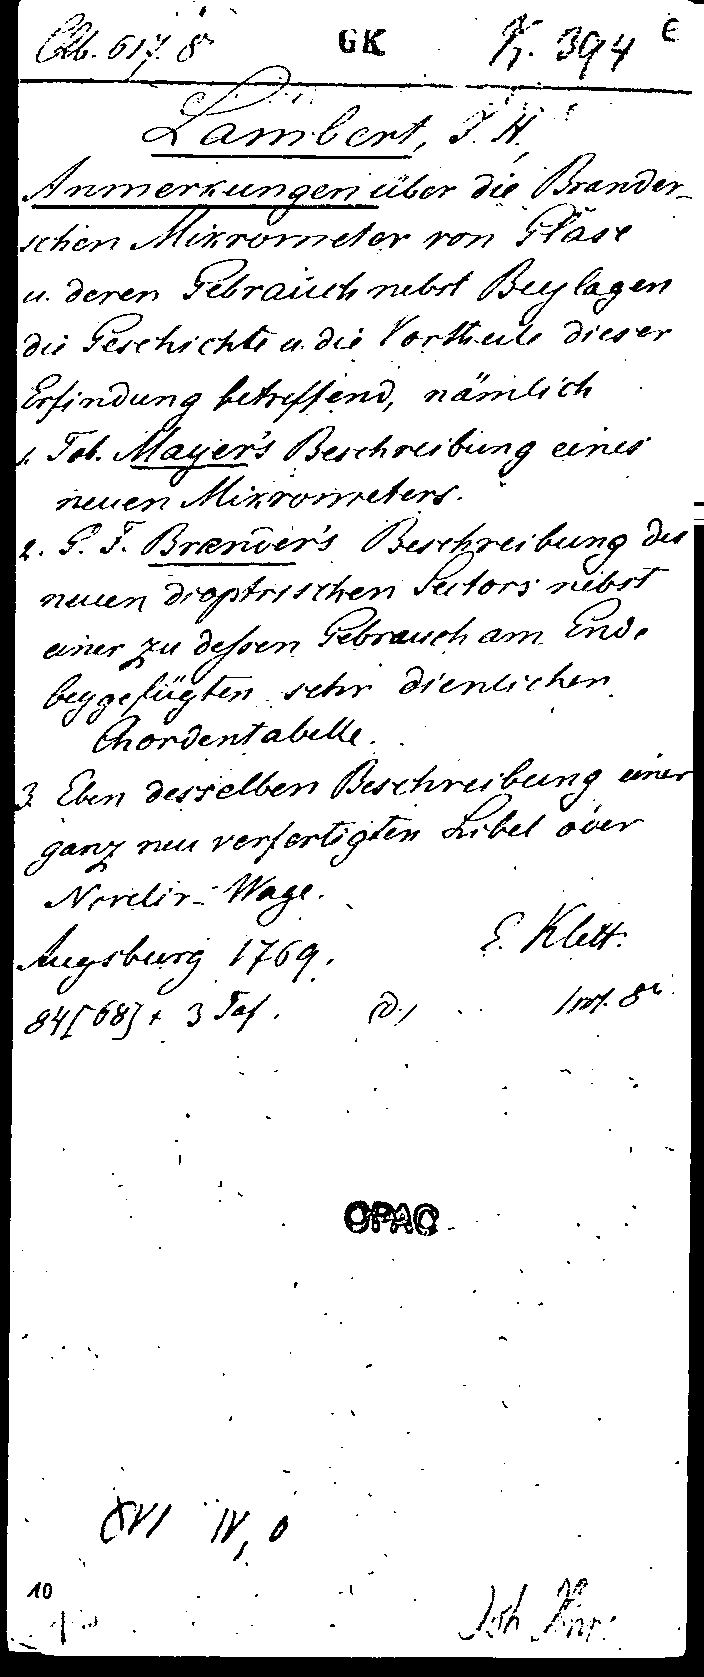 617. 8° GK 394 e
Lambert, J. H.
Anmerkungen über die Brander-
schen Mikrometer von Glase
u. deren Gebrauch nebst Beylagen
die Geschichte u. die Vortheile dieser
Erfindung betreffend, nämlich
1. Tob. Mayer's Beschreibung eines
neuen Mikrometers.
2. G. F. Brander's Beschreibung des
neuen dioptrischen Sectors nebst
einer zu dessen Gebrauch am Ende
beygefügten sehr dienlichen
Chordentabelle.
3. Eben desselben Beschreibung einer
ganz neu verfertigten Libel oder
Nivelir-Wage.
Augsburg 1769. E. Klett.
84 [68] + 3 Taf. 8°
OPAC
XVI IV, 0
10
Joh Hnr: